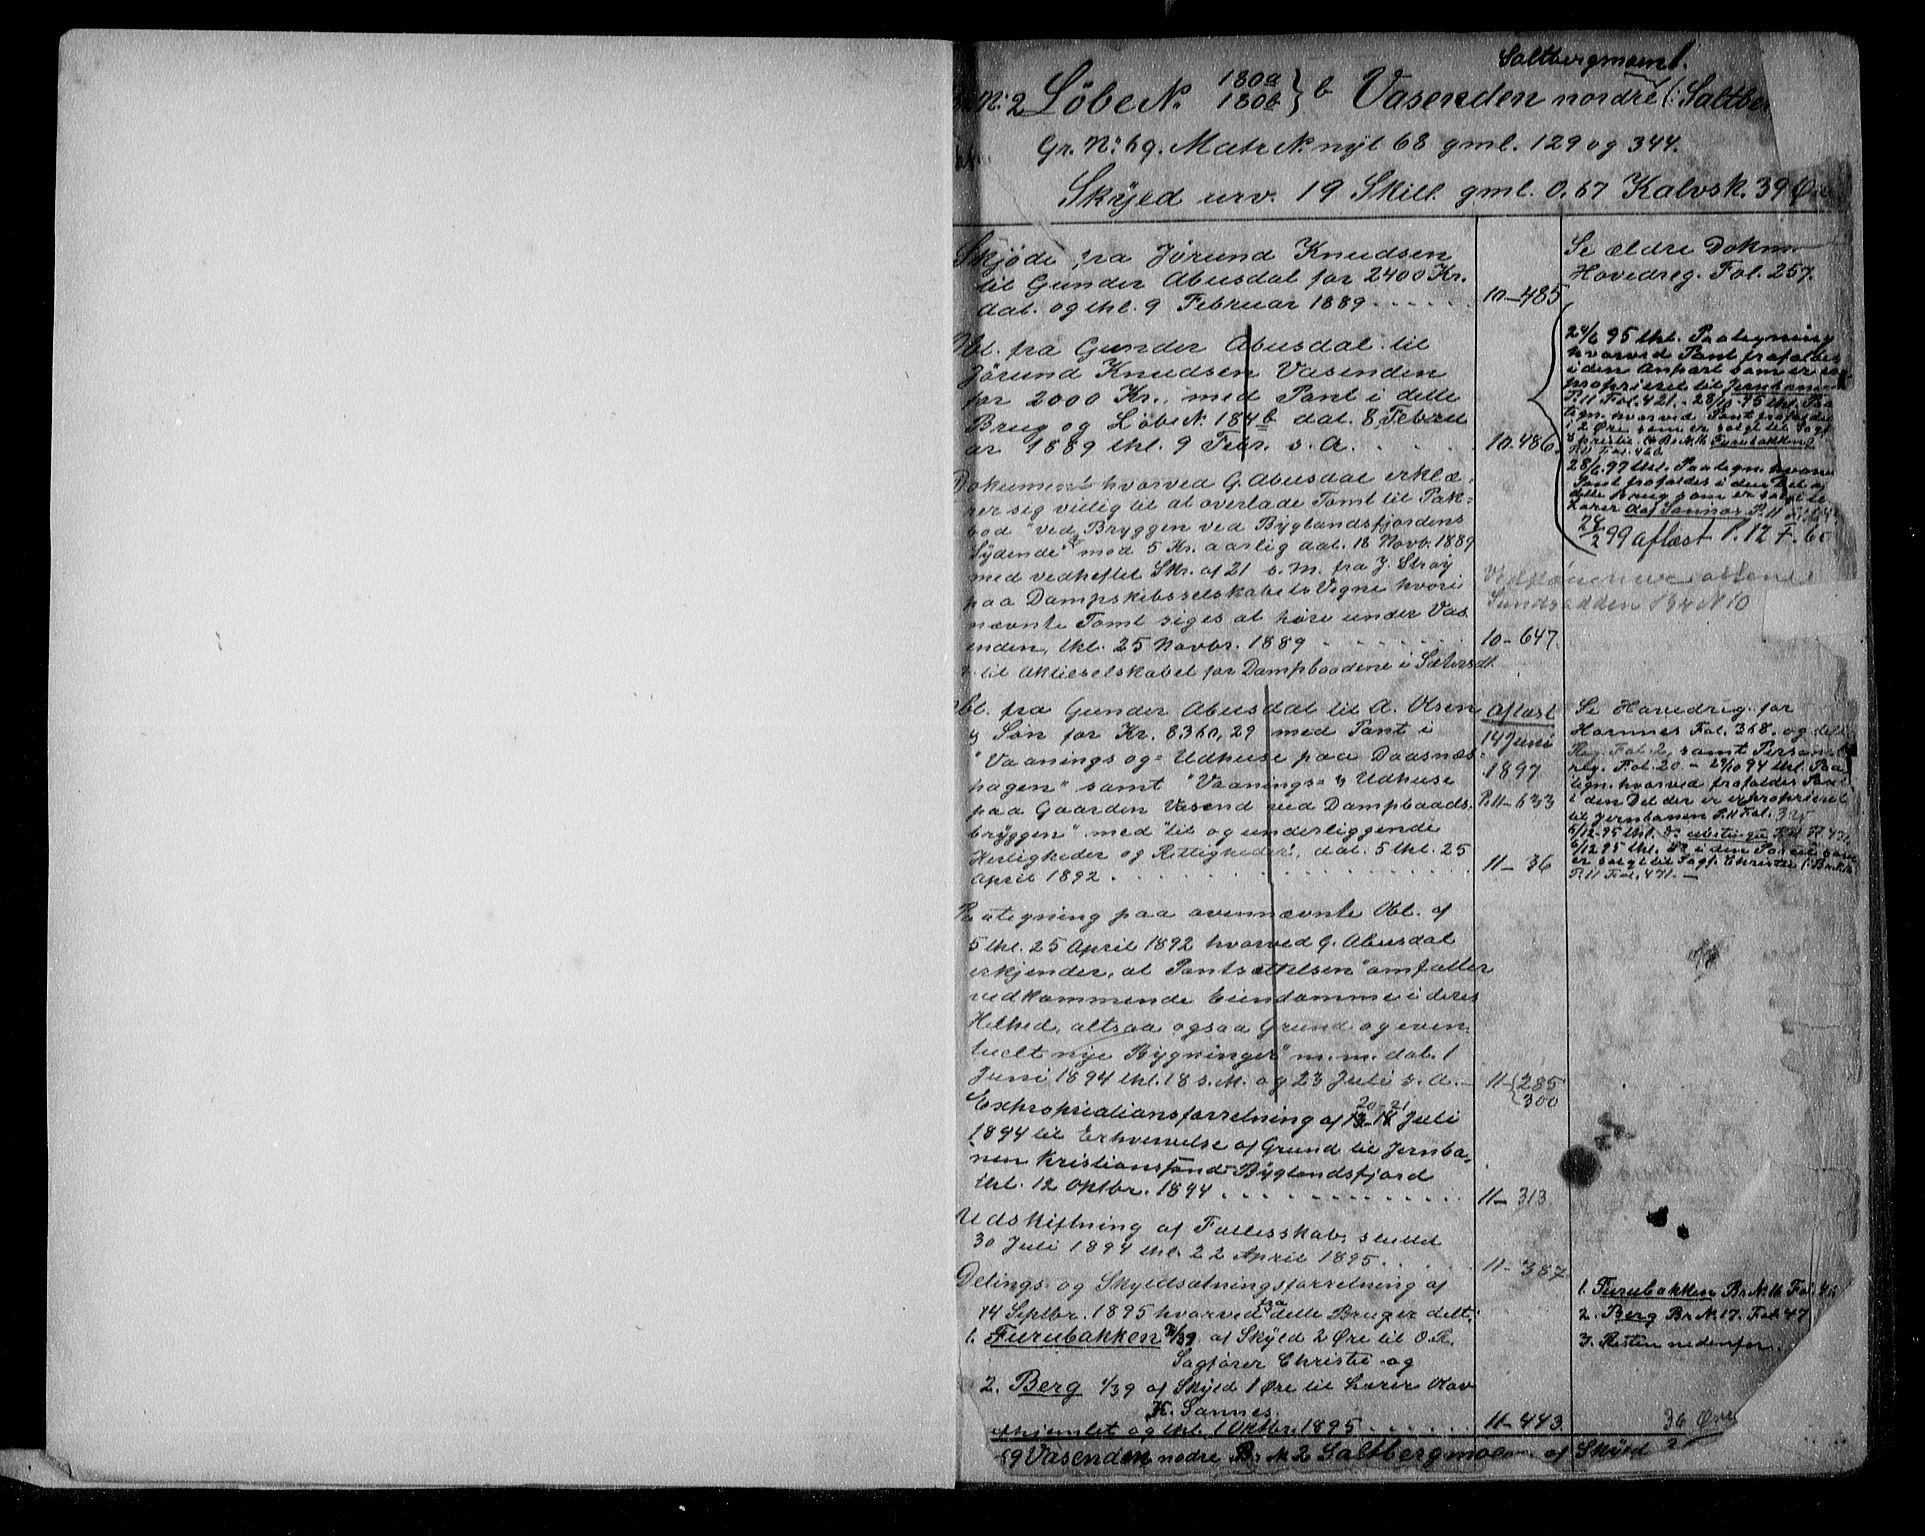 Saltbergmoen.
Br. N: 2 Løbe N. 180a 180b } b Vasenden nordre (: Saltber
Gr. N: 69. Matr N. nyt 68 gml. 129 og 344.
Skyld urv. 19 Skill. gml. 0.67 Kalvsk. 39 Øre
Skjøde fra Jørund Knudsen
til Gunder Abusdal for 2400 Kr.
dat. og thl. 9 Februar 1889 . . . . . 10-485
Obl. fra Gunder Abusdal til
Jørund Knudsen Vasenden
for 2000 Kr. med Pant i dette
Brug og Løbe N. 184b dat. 8 Febru
ar 1889 thl. 9 Febr. s. A. . . . 10.486.
Dokument hvorved G. Abusdal erklæ=
rer sig villig til at overlade Tomt til Pak=
bod "ved Bryggen ved Byglandsfjordens
Sydende" mod 5 Kr. aarlig dat. 18 Novb. 1889
med vedheftet Skr. af 21 s. M. fra J. Strøy
paa Dampskibsselskabets Vegne hvori
nævnte Tomt siges at høre under Vas
enden, thl. 25 Novbr. 1889 . . . . . . 10-647.
til Aktieselskabet for Dampbaadene i Sætersdl.
Obl. fra Gunder Abusdal til A. Olsen
& Søn for Kr. 8360,29 med Pant i
"Vaanings og= Udhuse paa Daasnæs=
hagen" samt "Vaanings= & Udhuse
paa Gaarden Vasend ved Dampbaads=
bryggen" med "til og underliggende
Herligheder og Rettigheder", dat. 5 thl. 25
April 1892 . . . . . . . . . . 11-36
Aflæst
14 Juni
1897
P. 11-633
Paategning paa ovennævnte Obl. af
5 thl. 25 April 1892 hvorved G. Abusdal
erkjender, at Pantsættelsen "omfatter
vedkommende Eiendomme i deres
Helhed, altsaa ogsaa Grund og even=
tuelt nye Bygninger" m.m. dat. 1
Juni 1894 thl. 18 s. M. og 23 Juli s. A. - 11-{285 300
20-21
Expropriationsforretning af Juli
1894 til Erhvervelse af Grund til Jernba=
nen Kristianssand-Byglandsfjord
thl. 12 Oktbr. 1894 . . . . . . . . 11-313
Udskiftning af Fællesskab, sluttet
30 Juli 1894 thl. 22 April 1895. . . . . 11-387
Delings- og Skyldsætningsforretning af
14 Septbr. 1895 hvorved fra dette Brug er delt:
1. Furubakken 2/39 af Skyld 2 Øre til O.R.
Sagfører Christie og
2. Berg 1/39 af Skyld 1 Øre til Lærer Olav
K. Sannes.
afhjemlet og thl. 1 Oktbr. 1895 . . . . . 11-443.
69 Vasenden nodre Br. N 2 Saltbergmoen af Skyld
Se ældre Dokum
Hovedreg. Fol. 257.
24/6 95 thl. Paategning
hvorved Pant frafaldes
i den Anpart som er ex
proprieret til Jernbanen
P. 11 Fol. 421. - 28/10 95 thl. Paa
tegn. hvorved Pant frafaldes
i 2 Øre som er solgt til Sagf.
Christie. (: Br. N. 16 Furubakken)
P. 11 Fol. 460.
28/6 97 thl. Paategn. hvorv
Pant frafaldes i den Del af
dette Brug som er solgt til
Lærer Olaf Sannes P. 11
24/2 99 aflæst P. 12 F. 60
Sundsodden Br N 10
Se Hovedreg. for
Hornnes Fol. 368. og dette
Reg. Fol. 2, samt Personal
reg. Fol. 20 - 29/10 94 thl. Paa
tegn. hvorved frafaldes Pant
i den Del der er exproprieret
til Jernbanen P. 11 Fol. 325
6/12 95 thl. do
6/12 95 thl. do i den Parcel som
er solgt til Sagf. Christie (: Br. N. 16
P. 11 Fol. 471. -
1. Furubakken Br. N. 16 Fol. 46
2. Berg Br. N. 17. Fol 47
3. Resten nedenfor.
36 Øre